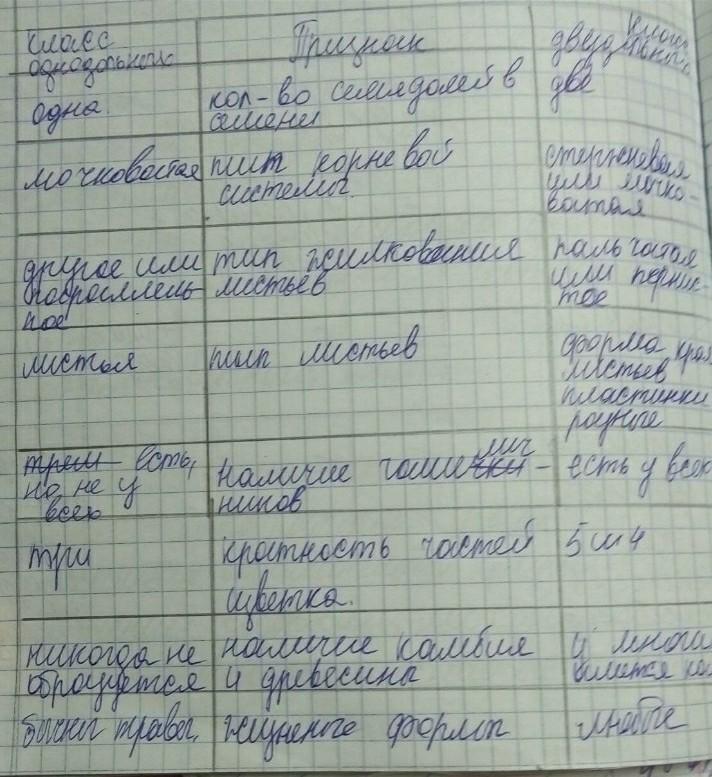 класс однодольного
Признак
класс двудольного
одна.
кол-во семядолей в
семени
две
мочковатая
тип корневой
системы.
стержневая
или мочко-
ватая
другое или
параллель-
ное
тип жилкования
листьев
пальчатая
или перис-
тое
листья
тип листьев
форма края
листьев
пластинки
разные
есть,
но не у
всех
наличие чашелич-
ников
есть у всех
три
кратность частей
цветка.
5 или 4
никогда не
образуется
наличие камбия
и древесина
у многих
имеется
травы,
жизненые формы
любые